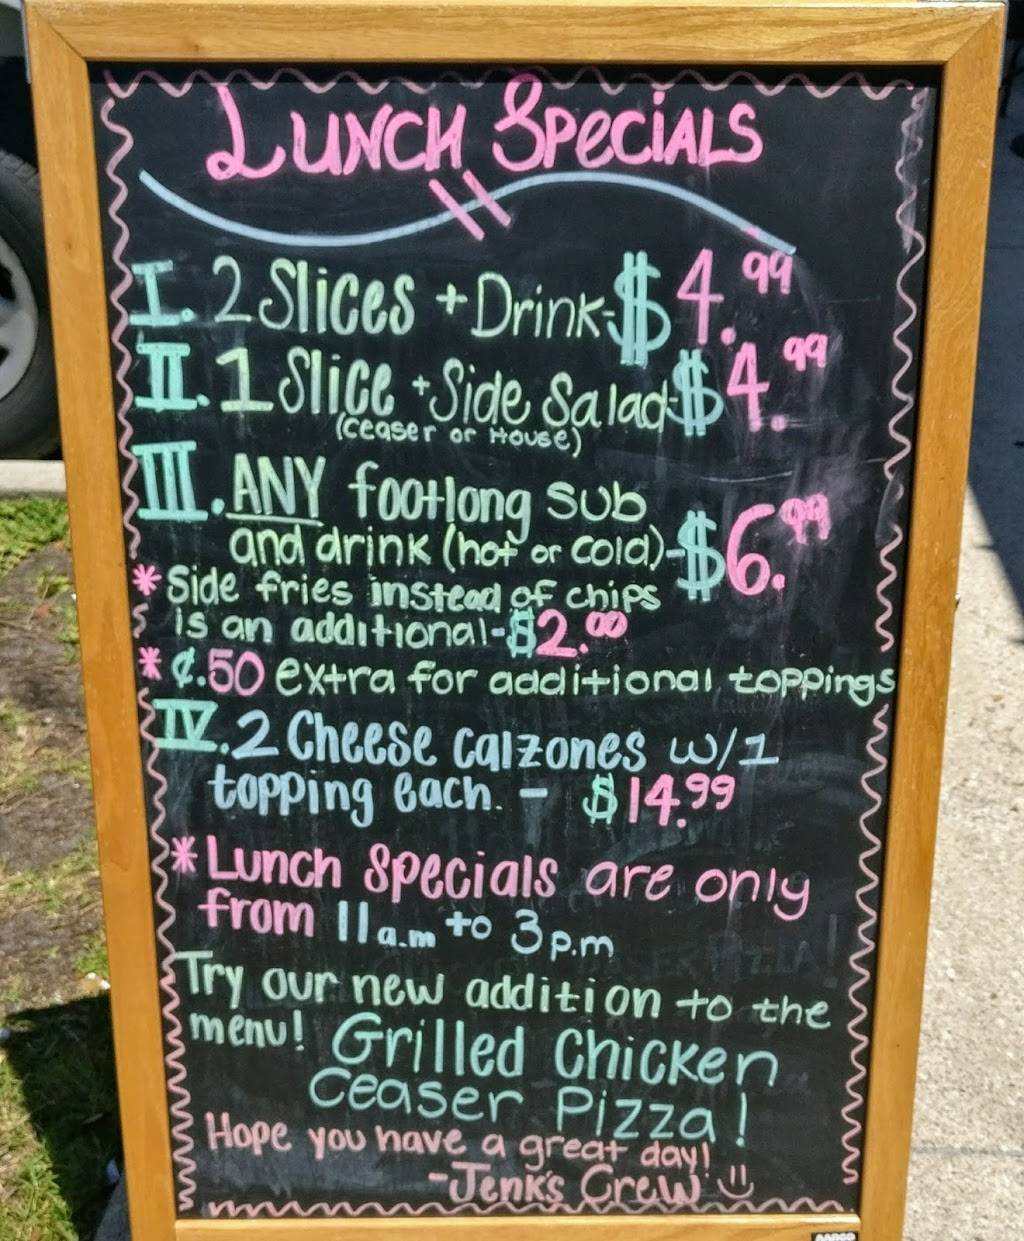 Lunch Specials
I. 2 Slices + Drink - $4.99
II. 1 Slice + Side Salad - $4.99
(Ceaser or House)
III. ANY footlong sub
and drink (hot or cold) - $6.99
* Side fries instead of chips
is an additional - $2.00
* ¢.50 extra for additional toppings
IV. 2 Cheese Calzones w/1
topping each. - $14.99
* Lunch Specials are only
from 11a.m to 3p.m
Try our new addition to the
menu! Grilled Chicken
Ceaser Pizza!
Hope you have a great day!
- Jenk's Crew